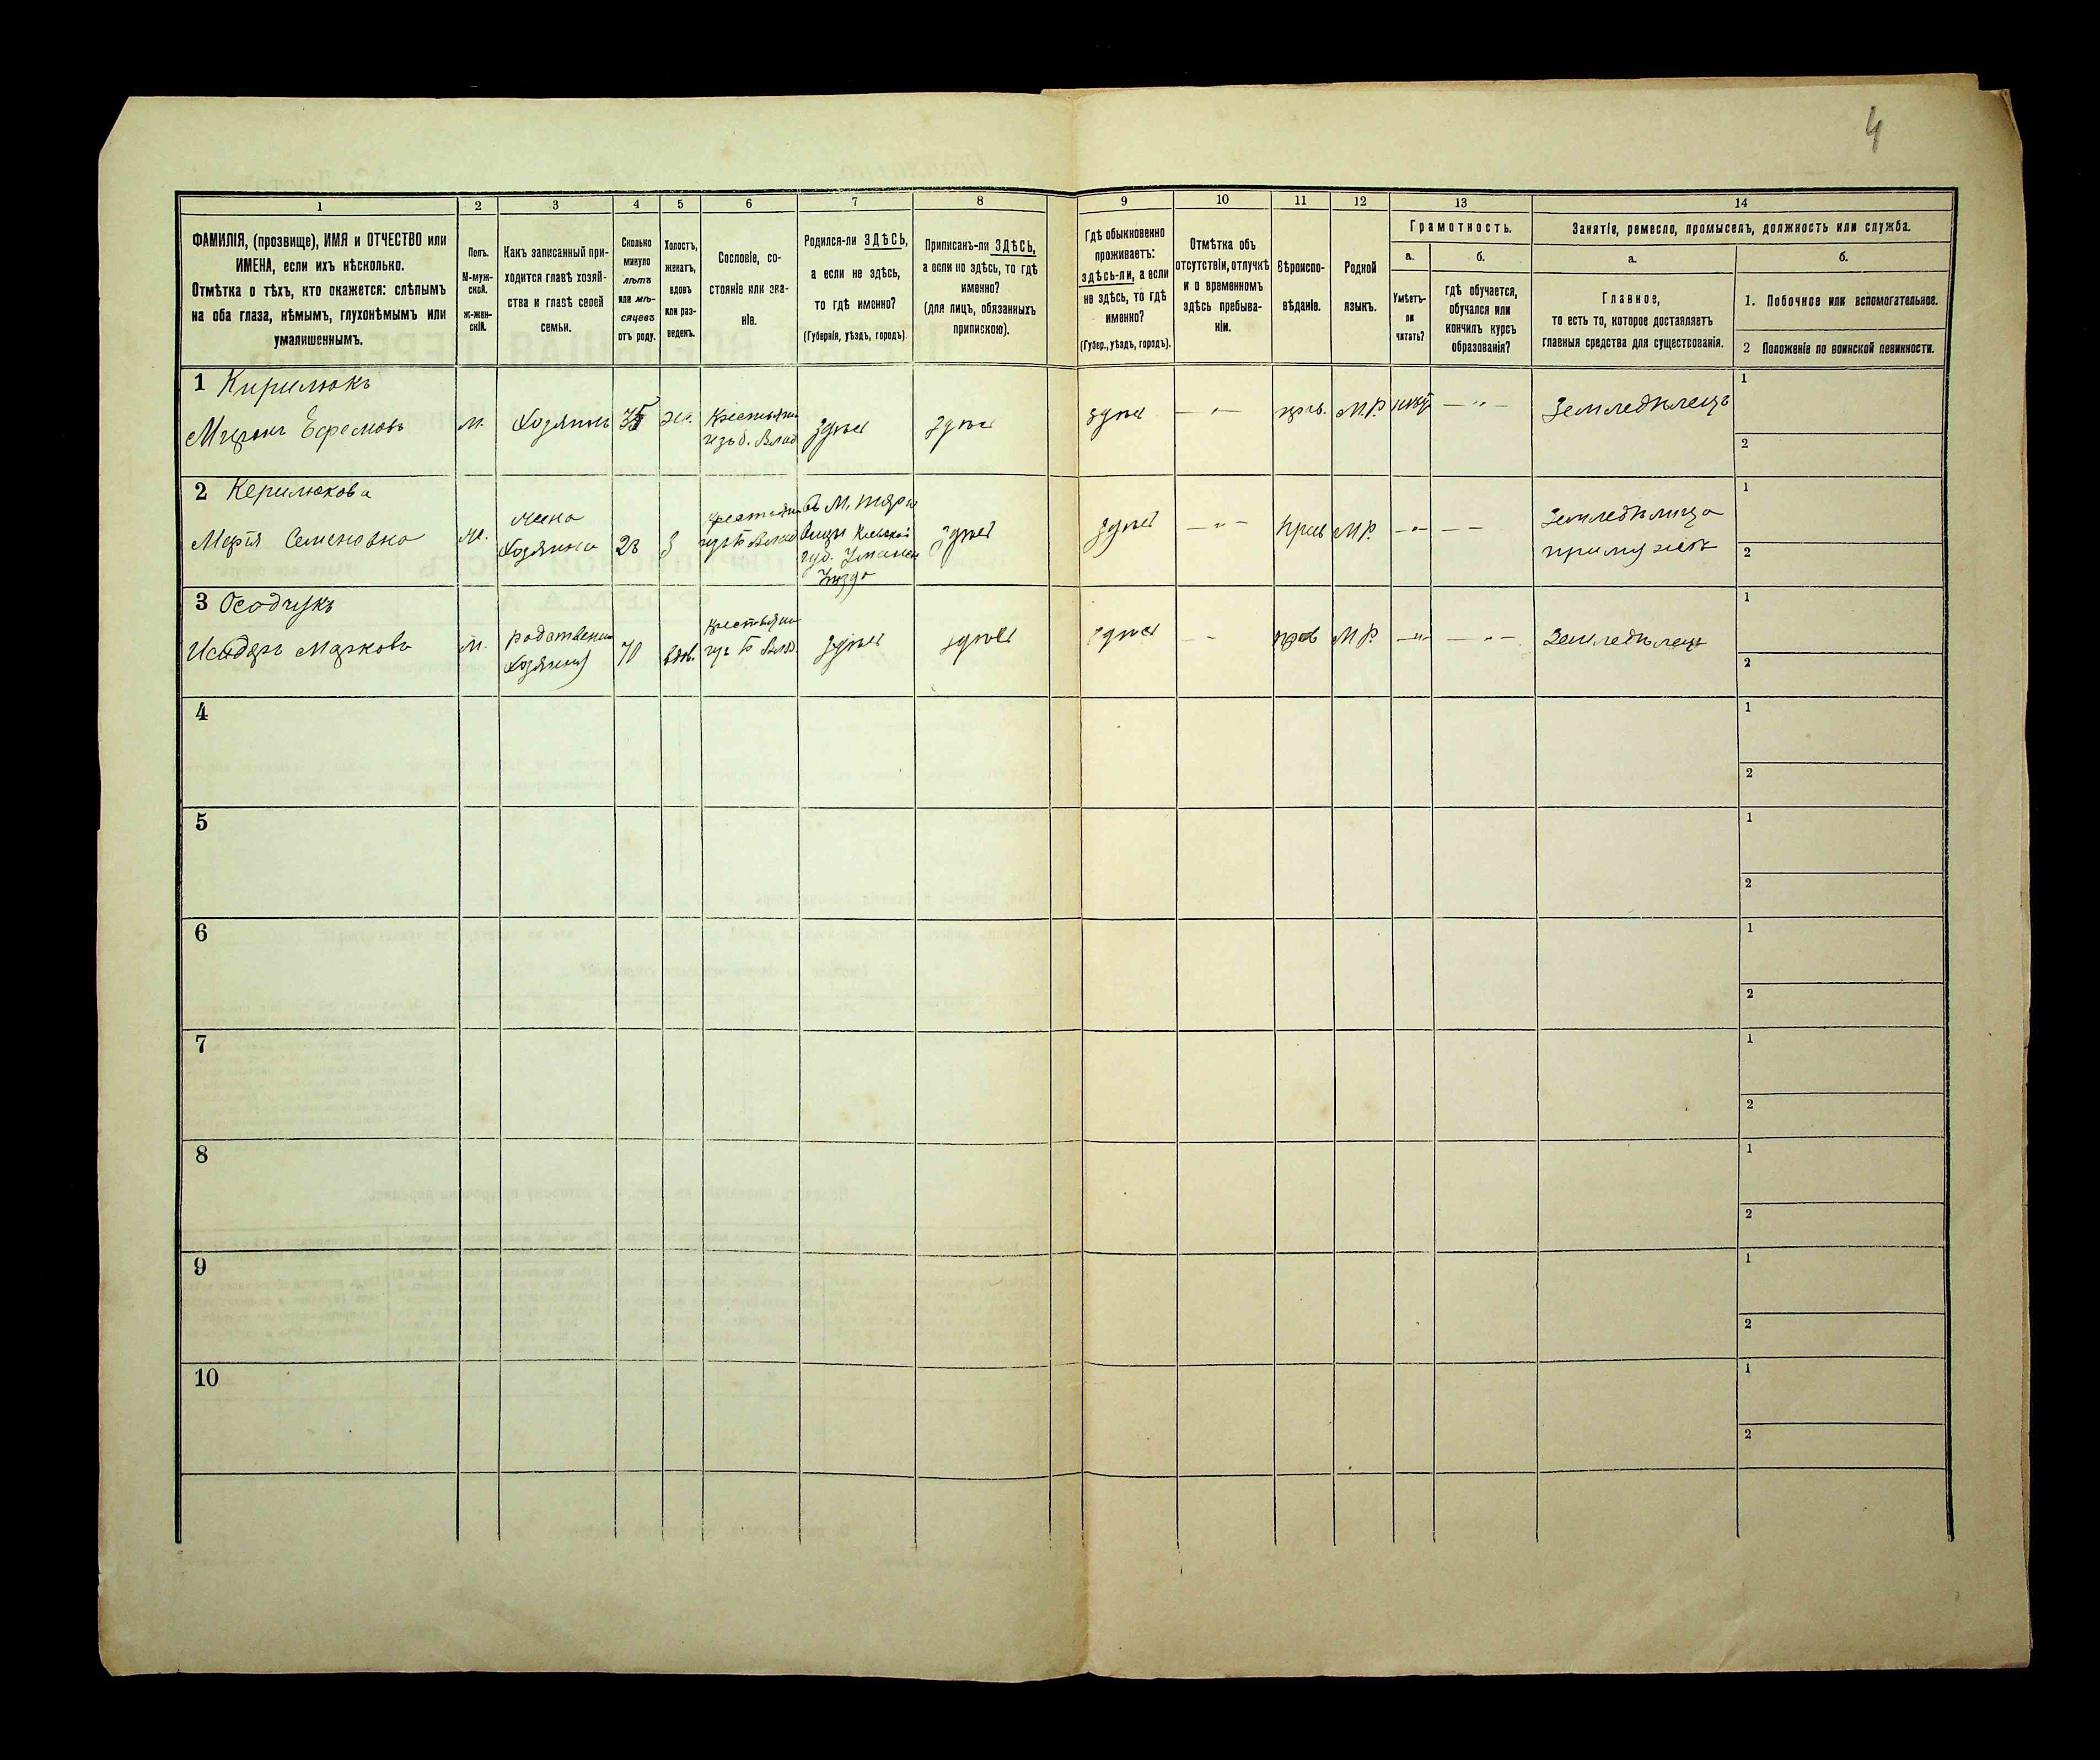 4
1 2 3 4 5 6 7 8 9 10 11 12 13 14
ФАМИЛІЯ, (прозвище), ИМЯ и ОТЧЕСТВО или
ИМЕНА, если ихъ нѣсколько.
Отмѣтка о тѣхъ, кто окажется: слѣпымъ
на оба глаза, нѣмымъ, глухонѣмымъ или
умалишеннымъ.
Полъ.
М-муж-
ской.
ж-жен-
скій.
Какъ записанный при-
ходится главѣ хозяй-
ства и главѣ своей
семьи.
Сколько
минуло
лѣтъ
или мѣ-
сяцевъ
отъ роду.
Холостъ,
женатъ,
вдовъ
или раз-
веденъ.
Сословіе, со-
стояніе или зва-
ніе.
Родился-ли ЗДѢСЬ,
а если не здѣсь,
то гдѣ именно?
(Губернія, уѣздъ, городъ)
Приписанъ-ли ЗДѢСЬ,
а если не здѣсь, то гдѣ
именно?
(для лицъ, обязанныхъ
припискою).
Гдѣ обыкновенно
проживаетъ:
здѣсь-ли, а если
не здѣсь, то гдѣ
именно?
(Губер., уѣздъ, городъ).
Отмѣтка объ
отсутствіи, отлучкѣ
и о временномъ
здѣсь пребыва-
ніи.
Вѣроиспо-
вѣданіе.
Родной
языкъ.
Грамотность.
а.
Умѣетъ-
ли
читать?
б.
гдѣ обучается,
обучался или
кончилъ курсъ
образованія?
Занятіе, ремесло, промыселъ, должность или служба.
а.
Главное,
то есть то, которое доставляетъ
главныя средства для существованія.
б.
1. Побочное или вспомогательное.
2 Положеніе по воинской повинности.
1 Кирилюкъ
Миронъ Ефремовъ
м.
Хозяинъ
35
же.
здѣсь
здѣсь
здѣсь
— „ —
М.Р.
— „ —
Земледѣлецъ
1
2
2 Керилюкова
Марія Семеновна
жена
Хозяина
здѣсь
здѣсь
— „ —
Прав
М.Р.
— „ — —
1
2
3 Осадчукъ
Исидоръ Марковъ
м.
родственн
Хозяина
70
вдов.
здѣсь
здѣсь
здѣсь
— -
прав
М.Р.
— „ —
— „ —
Земледѣлец
1
2
4
1
2
5
1
2
6
1
2
7
1
2
8
1
2
9
1
2
10
1
2